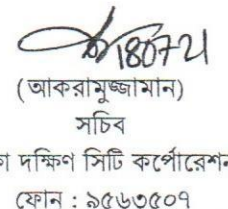 180721
(আকরামুজ্জামান)
সচিব
দক্ষিণ সিটি কর্পোরেশন
ফোন : ৯৫৬৩৫০৭